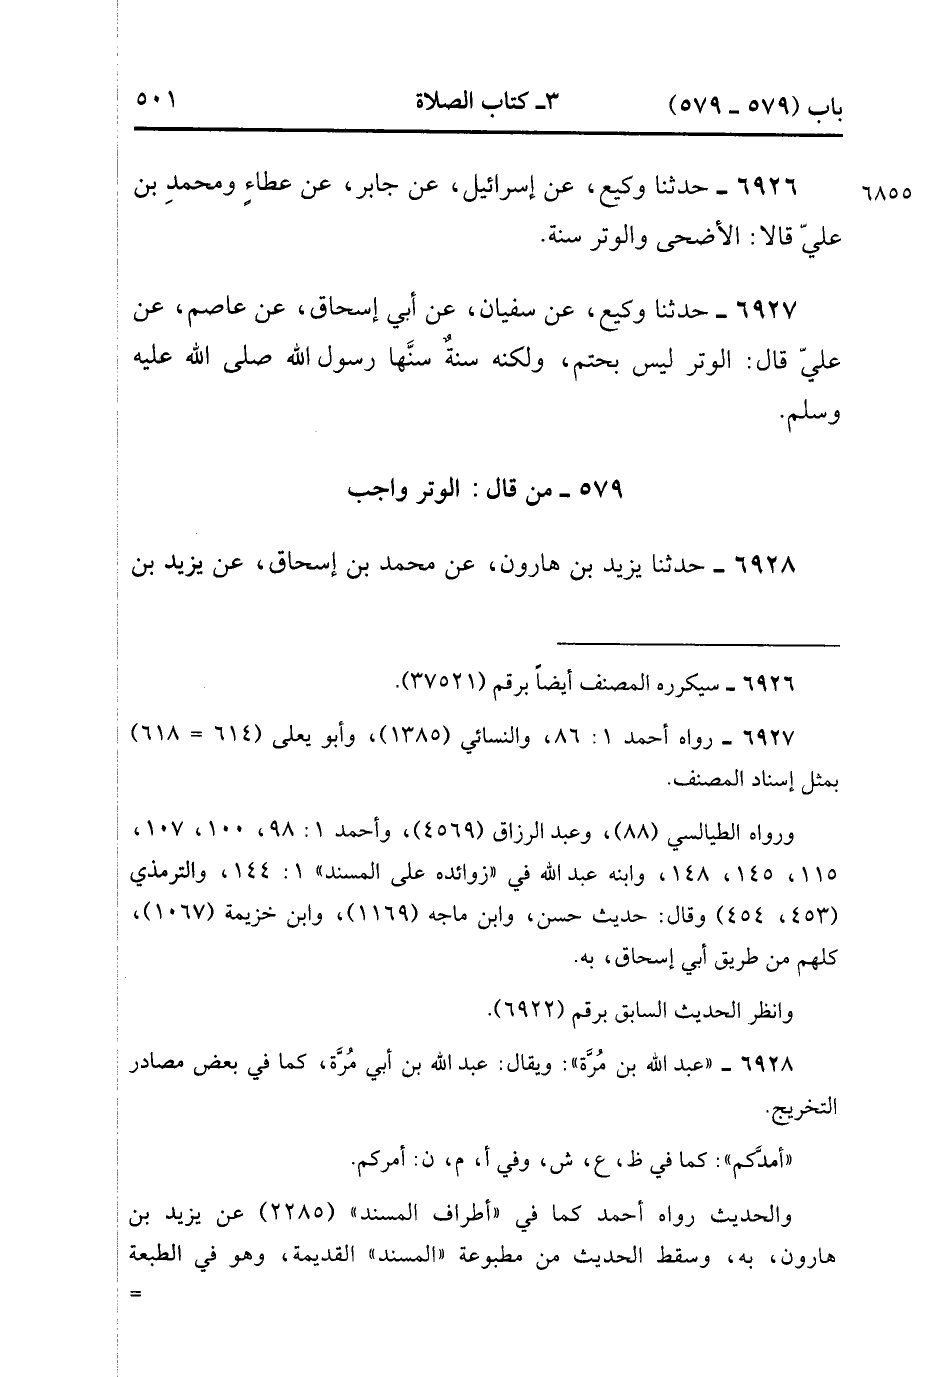 باب (٥٧٩ ـ ٥٧٩)
٣ـ كتاب الصلاة
٥٠١
٦٩٢٦ ـ حدثنا وكيع، عن إسرائيل، عن جابر، عن عطاءٍ ومحمدِ بن
٦٨٥٥
عليّ قالا: الأضحى والوتر سنة.
٦٩٢٧ ـ حدثنا وكيع، عن سفيان، عن أبي إسحاق، عن عاصم، عن
عليّ قال: الوتر ليس بحتم، ولكنه سنةٌ سنَّها رسول الله صلى الله عليه
وسلم.
٥٧٩ ـ من قال: الوتر واجب
٦٩٢٨ ـ حدثنا يزيد بن هارون، عن محمد بن إسحاق، عن يزيد بن
٦٩٢٦ ـ سيكرره المصنف أيضاً برقم (٣٧٥٢١).
٦٩٢٧ ـ رواه أحمد ١: ٨٦، والنسائي (١٣٨٥)، وأبو يعلى (٦١٤ = ٦١٨)
بمثل إسناد المصنف.
ورواه الطيالسي (٨٨)، وعبد الرزاق (٤٥٦٩)، وأحمد ١: ٩٨، ١٠٠، ١٠٧،
١١٥، ١٤٥، ١٤٨، وابنه عبد الله في «زوائده على المسند» ١: ١٤٤، والترمذي
(٤٥٣، ٤٥٤) وقال: حديث حسن، وابن ماجه (١١٦٩)، وابن خزيمة (١٠٦٧)،
كلهم من طريق أبي إسحاق، به.
وانظر الحديث السابق برقم (٦٩٢٢).
٦٩٢٨ ـ «عبد الله بن مُرَّة»: ويقال: عبد الله بن أبي مُرَّة، كما في بعض مصادر
التخريج.
«أمدَّكم»: كما في ظ، ع، ش، وفي أ، م، ن: أمركم.
والحديث رواه أحمد كما في «أطراف المسند» (٢٢٨٥) عن يزيد بن
هارون، به، وسقط الحديث من مطبوعة «المسند» القديمة، وهو في الطبعة
=